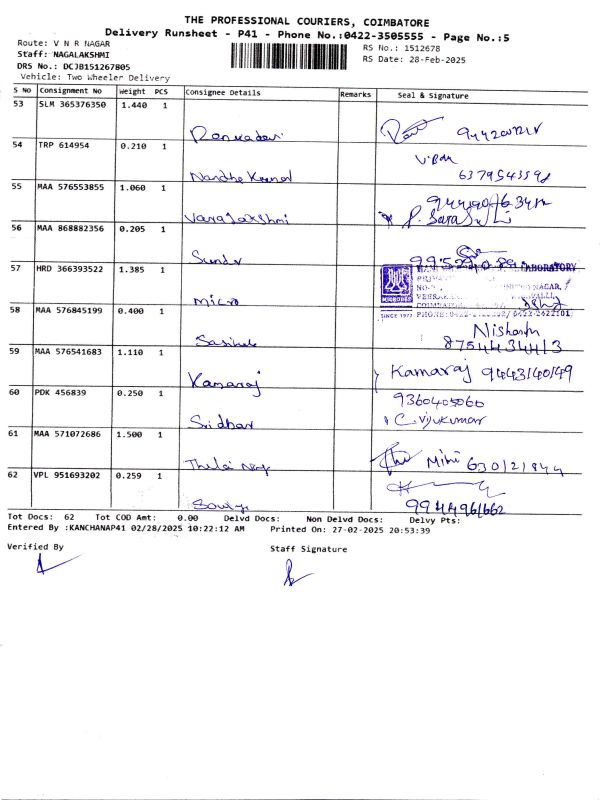 THE PROFESSIONAL COURIERS, COIMBATORE
Delivery Runsheet - P41 - Phone No.:0422-3505555 - Page No.:5
Route: V N R NAGAR
Staff: NAGALAKSHMI
DRS No.: DCJB151267805
Vehicle: Two Wheeler Delivery
RS No.: 1512678
RS Date: 28-Feb-2025
S No Consignment No Weight PCS Consignee Details Remarks Seal & Signature
53 SLM 365376350 1.440 1
54 TRP 614954 0.210 1
Nandha
6379543598
55 MAA 576553855 1.060 1
Varalakshmi
56 MAA 868882356 0.205 1
57 HRD 366393522 1.385 1
Micro
LABORATORY
MICROBES
SINCE 1977
58 MAA 576845199 0.400 1
Nishanth
8754434413
59 MAA 576541683 1.110 1
Kamaraj Kamaraj 9443140149
60 PDK 456839 0.250 1
Sridhar
9360405060
C. Vijukumar
61 MAA 571072686 1.500 1
62 VPL 951693202 0.259 1
9944961662
Tot Docs: 62 Tot COD Amt: 0.00 Delvd Docs: Non Delvd Docs: Delvy Pts:
Entered By :KANCHANAP41 02/28/2025 10:22:12 AM Printed On: 27-02-2025 20:53:39
Verified By
Staff Signature